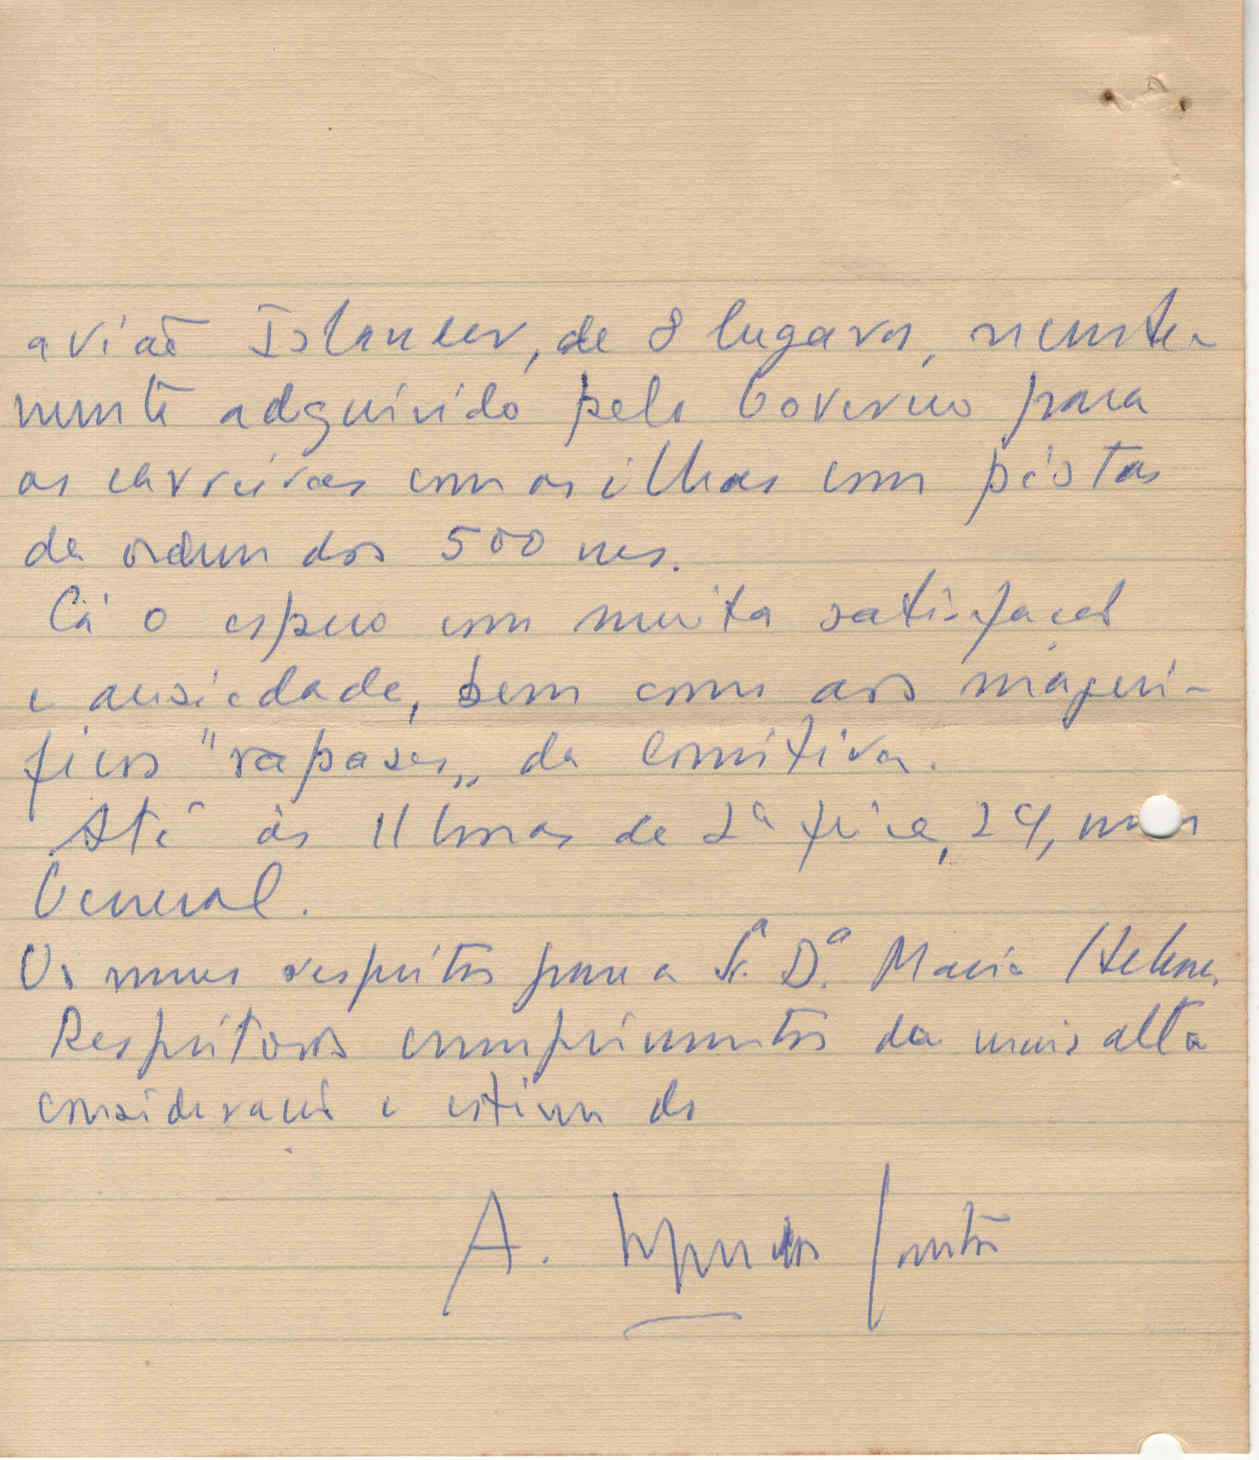 avião Islander, de 8 lugares, recente-
mente adquirido pelo Governo para
as carreiras com as ilhas com pistas
da ordem dos 500 ms.
Cá o espero com muita satisfação
e ansiedade, bem como aos magní-
ficos "rapases" da Comitiva.
Até às 11 horas de 2ª feira, 24, meu
General.
Os meus respeitos para a Srª. Dª. Maria Helena.
Respeitosos cumprimentos da mais alta
consideração e estima do
A. dos Santos